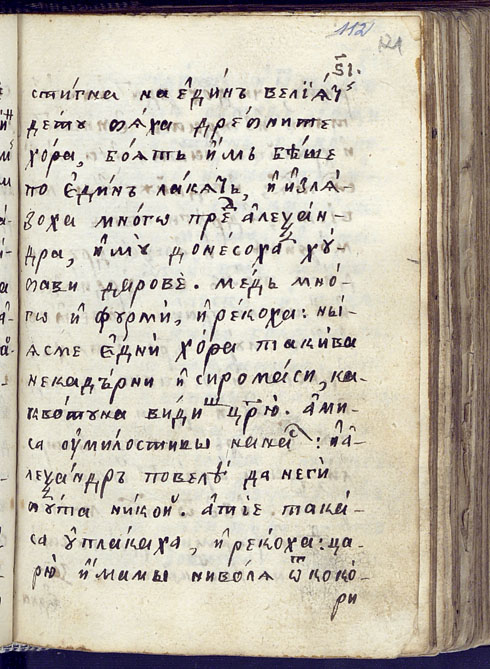 112
121
ѕ҃і.
стигна на едѝнъ велїа́тъ
дету бѧ́ха дре́бните
хо́ра, боѧтъ и́мъ бѣше
по еди́нъ ла́катъ, и изла́-
зоха мно́гѡ пред а̀леѯа́н-
дра, и̓мꙋ доне́соха ху́-
бави да́рове. медъ мно́-
гѡ и фурми́, и рекоха: ны́-
ѧсме едни́ хо́ра таки́ва
некадърни и сирома́си, ка-
квото на видиш црю̀. а̓ми-
са ᲂумилостивы на нас: и а̓-
леѯа́ндръ повелѣ да не ги
пу́та никой. а́тїе така́-
са ᲂуплакаха, и рекоха: ца-
рю̀ и́мамы нивѡлѧ ѿ коко́-
ри